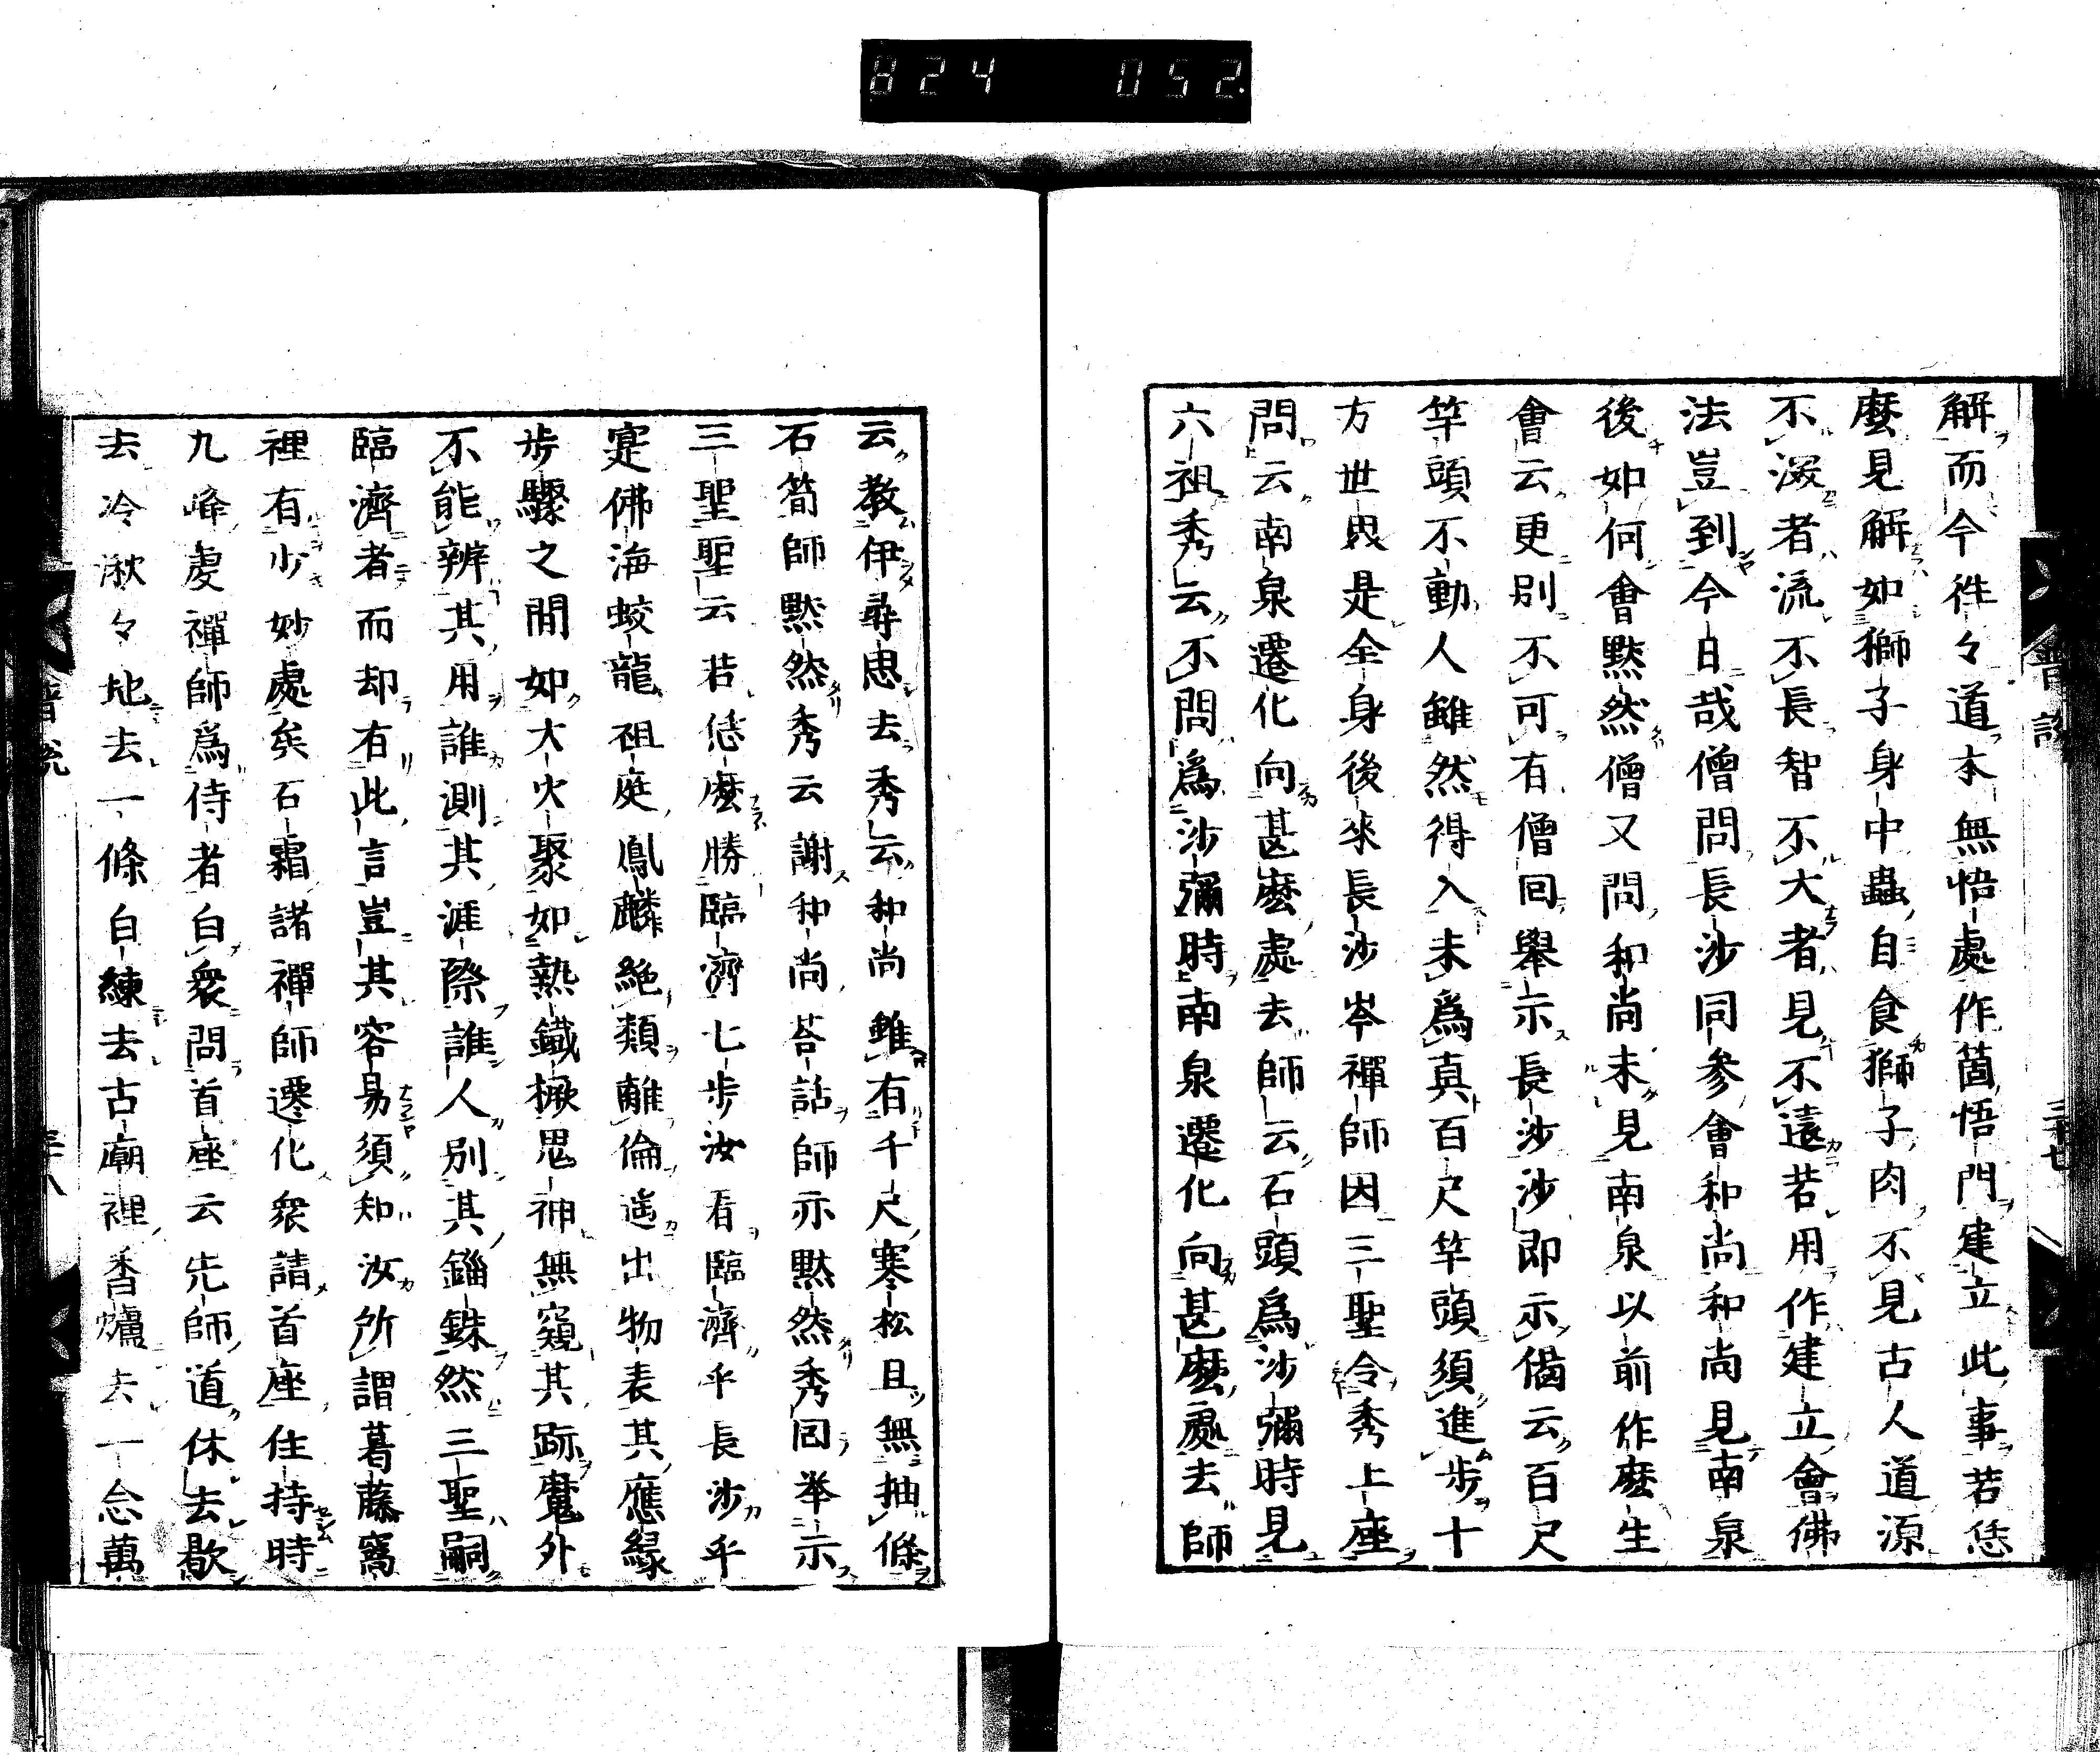 824 052
解而今往々道本無悟處作箇悟門建立此事若恁
麼見解如獅子身中蟲自食獅子肉不見古人道源
不深者流不長智不大者見不遠若用作建立會佛
法豈到今日哉僧問長沙同參會和尚和尚見南泉
後如何會黙然僧又問和尚未見南泉以前作麼生
會云更別不可有僧回舉示長沙沙即示偈云百尺
竿頭不動人雖然得入未爲真百尺竿頭須進步十
方世界是全身後來長沙岑禪師因三聖令秀上座
問云南泉遷化向甚麼處去師云石頭爲沙彌時見
六祖秀云不問爲沙彌時南泉遷化向甚麼處去師
云教伊尋思去秀云和尚雖有千尺寒松且無抽條
石筍師黙然秀云謝和尚荅話師亦黙然秀回举示
三聖聖云若恁麼勝臨濟七步汝看臨濟乎長沙乎
寔佛海蛟龍祖庭鳳麟絶類離倫遥出物表其應縁
步驟之間如大火聚如熱鐵橛鬼神無窺其跡魔外
不能辨其用誰測其涯際誰人別其錙銖然三聖嗣
臨濟者而却有此言豈其容易須知汝所謂葛藤窠
裡有少妙處矣石霜諸禪師遷化衆請首座住持時
九峰虔禪師爲侍者白衆問首座云先師道休去歇
去冷湫々地去一條白練去古廟裡香爐去一念萬
普說
三十七
普說
三十八